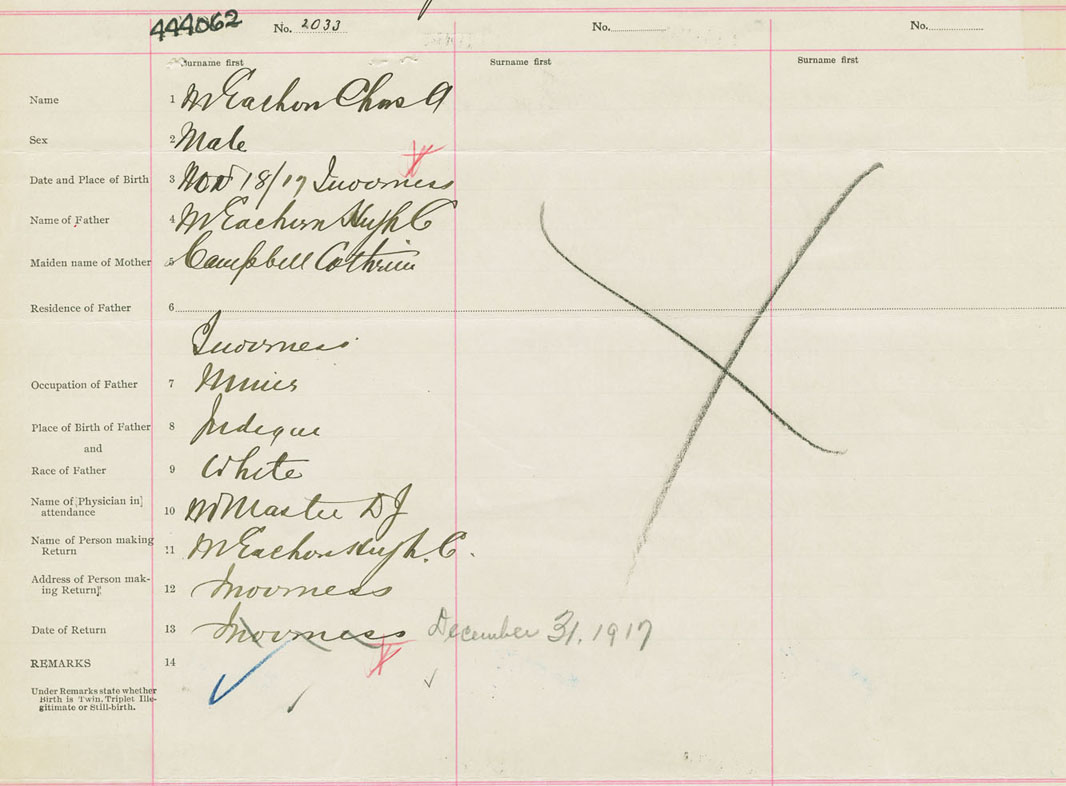 444062 No. 2033 No. No.
Surname first Surname first Surname first
Name 1 McEachon Chas A
Sex 2 Male
Date and Place of Birth 3 Nov 18/17 Inverness
Name of Father 4 McEachern Hugh C
Maiden name of Mother 5 Campbell
Residence of Father 6
Inverness
Occupation of Father 7 Miner
Place of Birth of Father 8 Judique
and
Race of Father 9 White
Name of [Physician in]
attendance 10 McMaster D J
Name of Person making
Return 11 McEachon Hugh. C.
Address of Person mak-
ing Return] 12 Inverness
Date of Return 13 Inverness December 31. 1917
REMARKS 14
Under Remarks state whether
Birth is Twin, Triplet Ille-
gitimate or Still-birth.